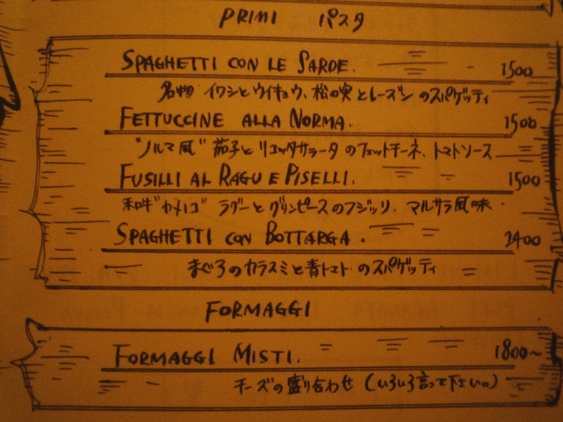 PRIMI パスタ
SPAGHETTI CON LE SARDE. 1500
名物 イワシとウイキョウ、松の実とレーズン のスパゲッティ
FETTUCCINE ALLA NORMA. 1500
"ノルマ風" 茄子とリコッタサラータ のフェットチーネ、トマトソース
FUSILLI AL RAGU E PISELLI. 1500
和牛 ラグーとグリンピースのフジッリ、マルサラ風味
SPAGHETTI CON BOTTARGA. 2400
まぐろのカラスミと青トマト のスパゲッティ
FORMAGGI
FORMAGGI MISTI. 1800~
チーズの盛り合わせ (いろいろ言って下さい。)